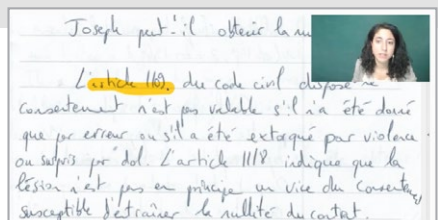 Joseph peut-il obtenir la nu
L'article 1109. du code civil dispose
consentement n'est pas valable s'il n'a été donné
que par erreur ou s'il a été extorqué par violence
ou surpris par dol. L'article 1118 indique que la
lésion n'est pas en principe un vice du
susceptible d'entraîner la nullité du contrat.